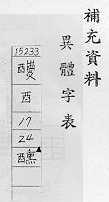 補充資料
異體字表
15233
醆
酉
17
24
醺